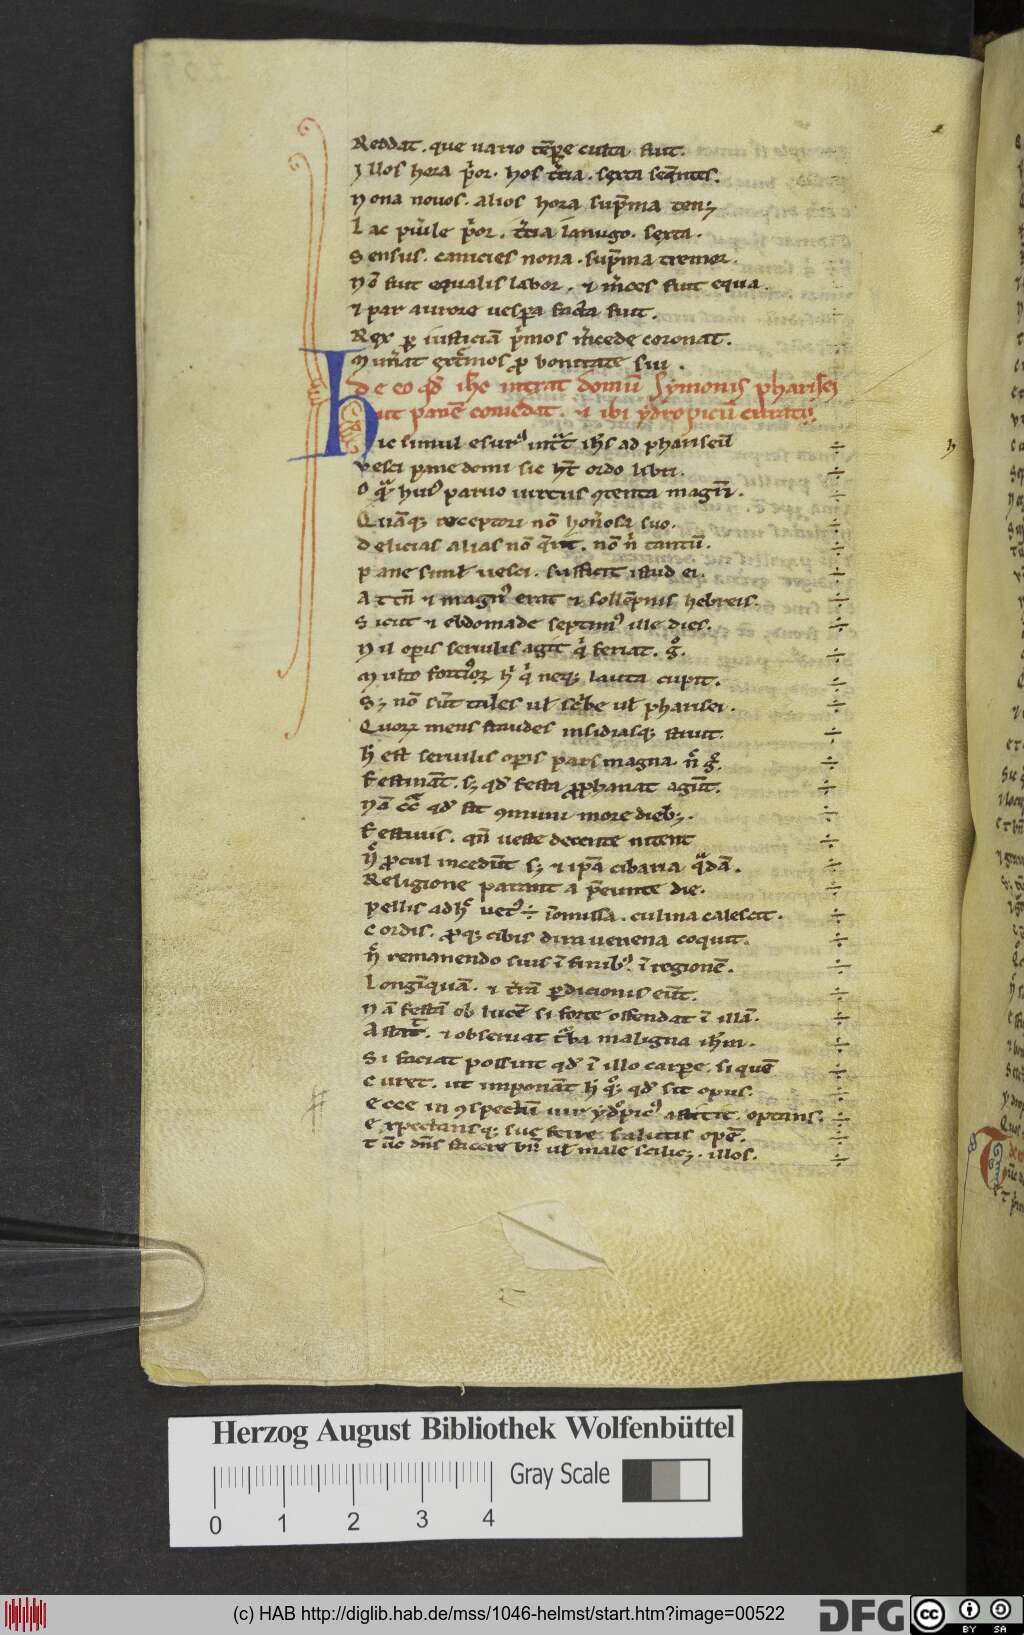 Reddat. que uario tēpꝛe culta fuit.
Illos hora pͥor. hos tͨia. sexta seq̄ntis.
Nona nouos. alios hora sup̄ma tenꝫ
Lac pior. lanugo. sexta.
Sensus. canicies nona. sup̄ma tremor.
Nō fuit equalis labor. ⁊ m̄ces fuit equa.
⁊ par aurore uesꝑa facta fuit.
Rex ꝑ iusticiā pͥmos m̄cede coronat.
Mun̄at ext̄mos ꝓ bonitate sui.
De eo qd̄ ihc intrat domū Symonis pharisei
ut panē comedat. ⁊ ibi ydropicū curat
Hic simul esurꝰ intͣt ihs ad phariseū
Vesci pane domi sic hꝫ ordo libri.
O qͣ huiꝰ paruo uirtus ꝯtenta magr̄i.
Quāqꝫ receptori nō hon̄osa suo.
Delicias alias nō q̄rit. nō n̄ tantū.
Pane simul uesci. sufficit istud ei.
At tn̄ ⁊ magnꝰ erat ⁊ sollēpnis hebreis.
Sicut ⁊ ebdomade septimꝰ ille dies.
Nil oꝑis seruilis agit qͥ feriat. gͦ.
Multo fortiꝰ hͥ qͥ neqꝫ lauta cupit.
Sꝫ nō sūt tales ul̄ scͥbe ul̄ pharisei.
Quoꝝ mens fraudes insidiasqꝫ struit.
H̄ est seruilis oꝑis pars magna. n̄ gͦ.
Festināt. sꝫ qd̄ festa ꝓphanat agūt.
Nā qd̄ fit ꝯmuni more diebꝫ.
Festiuis. qn̄ ueste decente nitent
N̄ ꝓcul incedūt sꝫ ⁊ ip̄a cibaria qͣdā.
Religione parant a p̄eunte die.
Pellis adhͨ uetꝰ ÷ īomissa. culina calescit.
Cordis. ꝓqꝫ cibis dira uenena coquit.
N̄ remanendo suis ī finibꝰ. ī regionē.
Longīquā. ⁊ t̄rā ꝑdicionis eūt.
Nā festā ob lucē si forte offendat ī illā.
Astat. ⁊ obseruat tͬba maligna ihm.
Si faciat possint qd̄ ī illo carꝑe. si quē
Curet. ut imponāt hͥ qͦqꝫ qd̄ sit opus.
Ecce in ꝯspectū uir ydͦpicꝰ astitit. optans.
Expectansqꝫ sue ferre salutis opē.
Tūc dn̄s facere bn̄ ul̄ male scilicꝫ. illos.
Herzog August Bibliothek Wolfenbüttel
Gray Scale
0 1 2 3 4
(c) HAB http://diglib.hab.de/mss/1046-helmst/start.htm?image=00522
DFG
cc BY SA